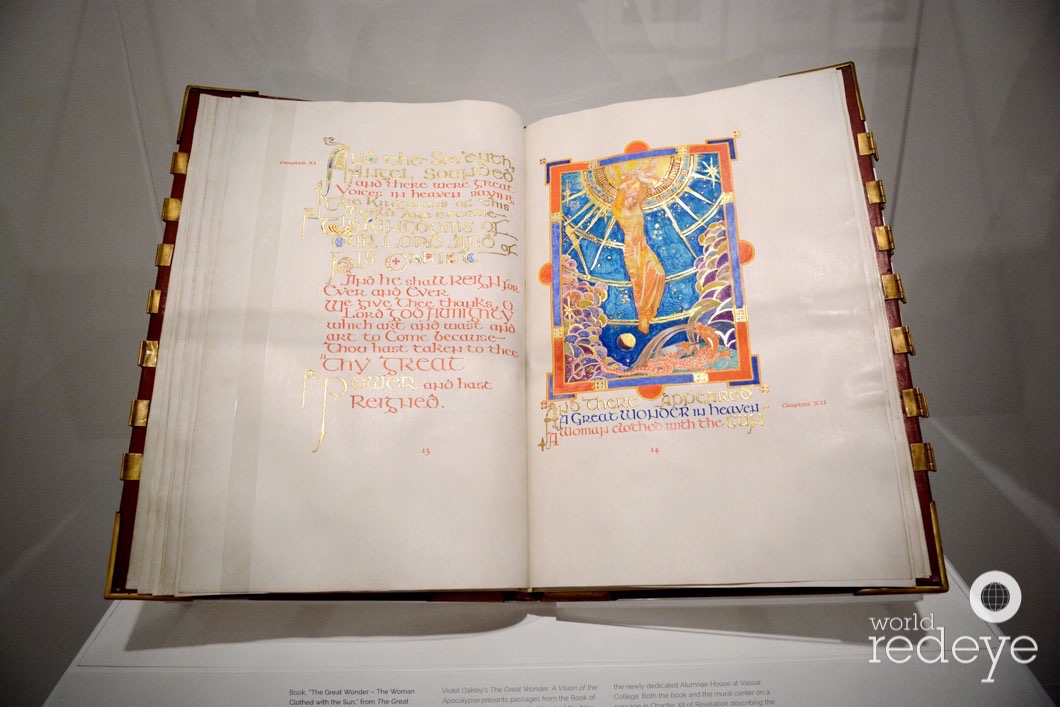 Chapter XI
And the Seventh
Angel Sounded
and there were great
Voices in heaven saying
The Kingdoms of this
World are become
Kingdoms of
our Lord and of
His Christ
And he shall reign for
Ever and Ever
We give Thee thanks, O
Lord God Almighty
which art and wast and
art to Come because
Thou hast taken to thee
Thy Great
Power and hast
Reigned.
13
And there appeared
A Great Wonder in heaven
A Woman clothed with the Sun
Chapter XII
14
world
redeye
Book, "The Great Wonder – The Woman
Clothed with the Sun," from The Great
Violet Oakley's The Great Wonder: A Vision of the
Apocalypse presents passages from the Book of
the newly dedicated Alumnae House at Vassar
College. Both the book and the mural center on a
passage in Chapter XII of Revelation describing the